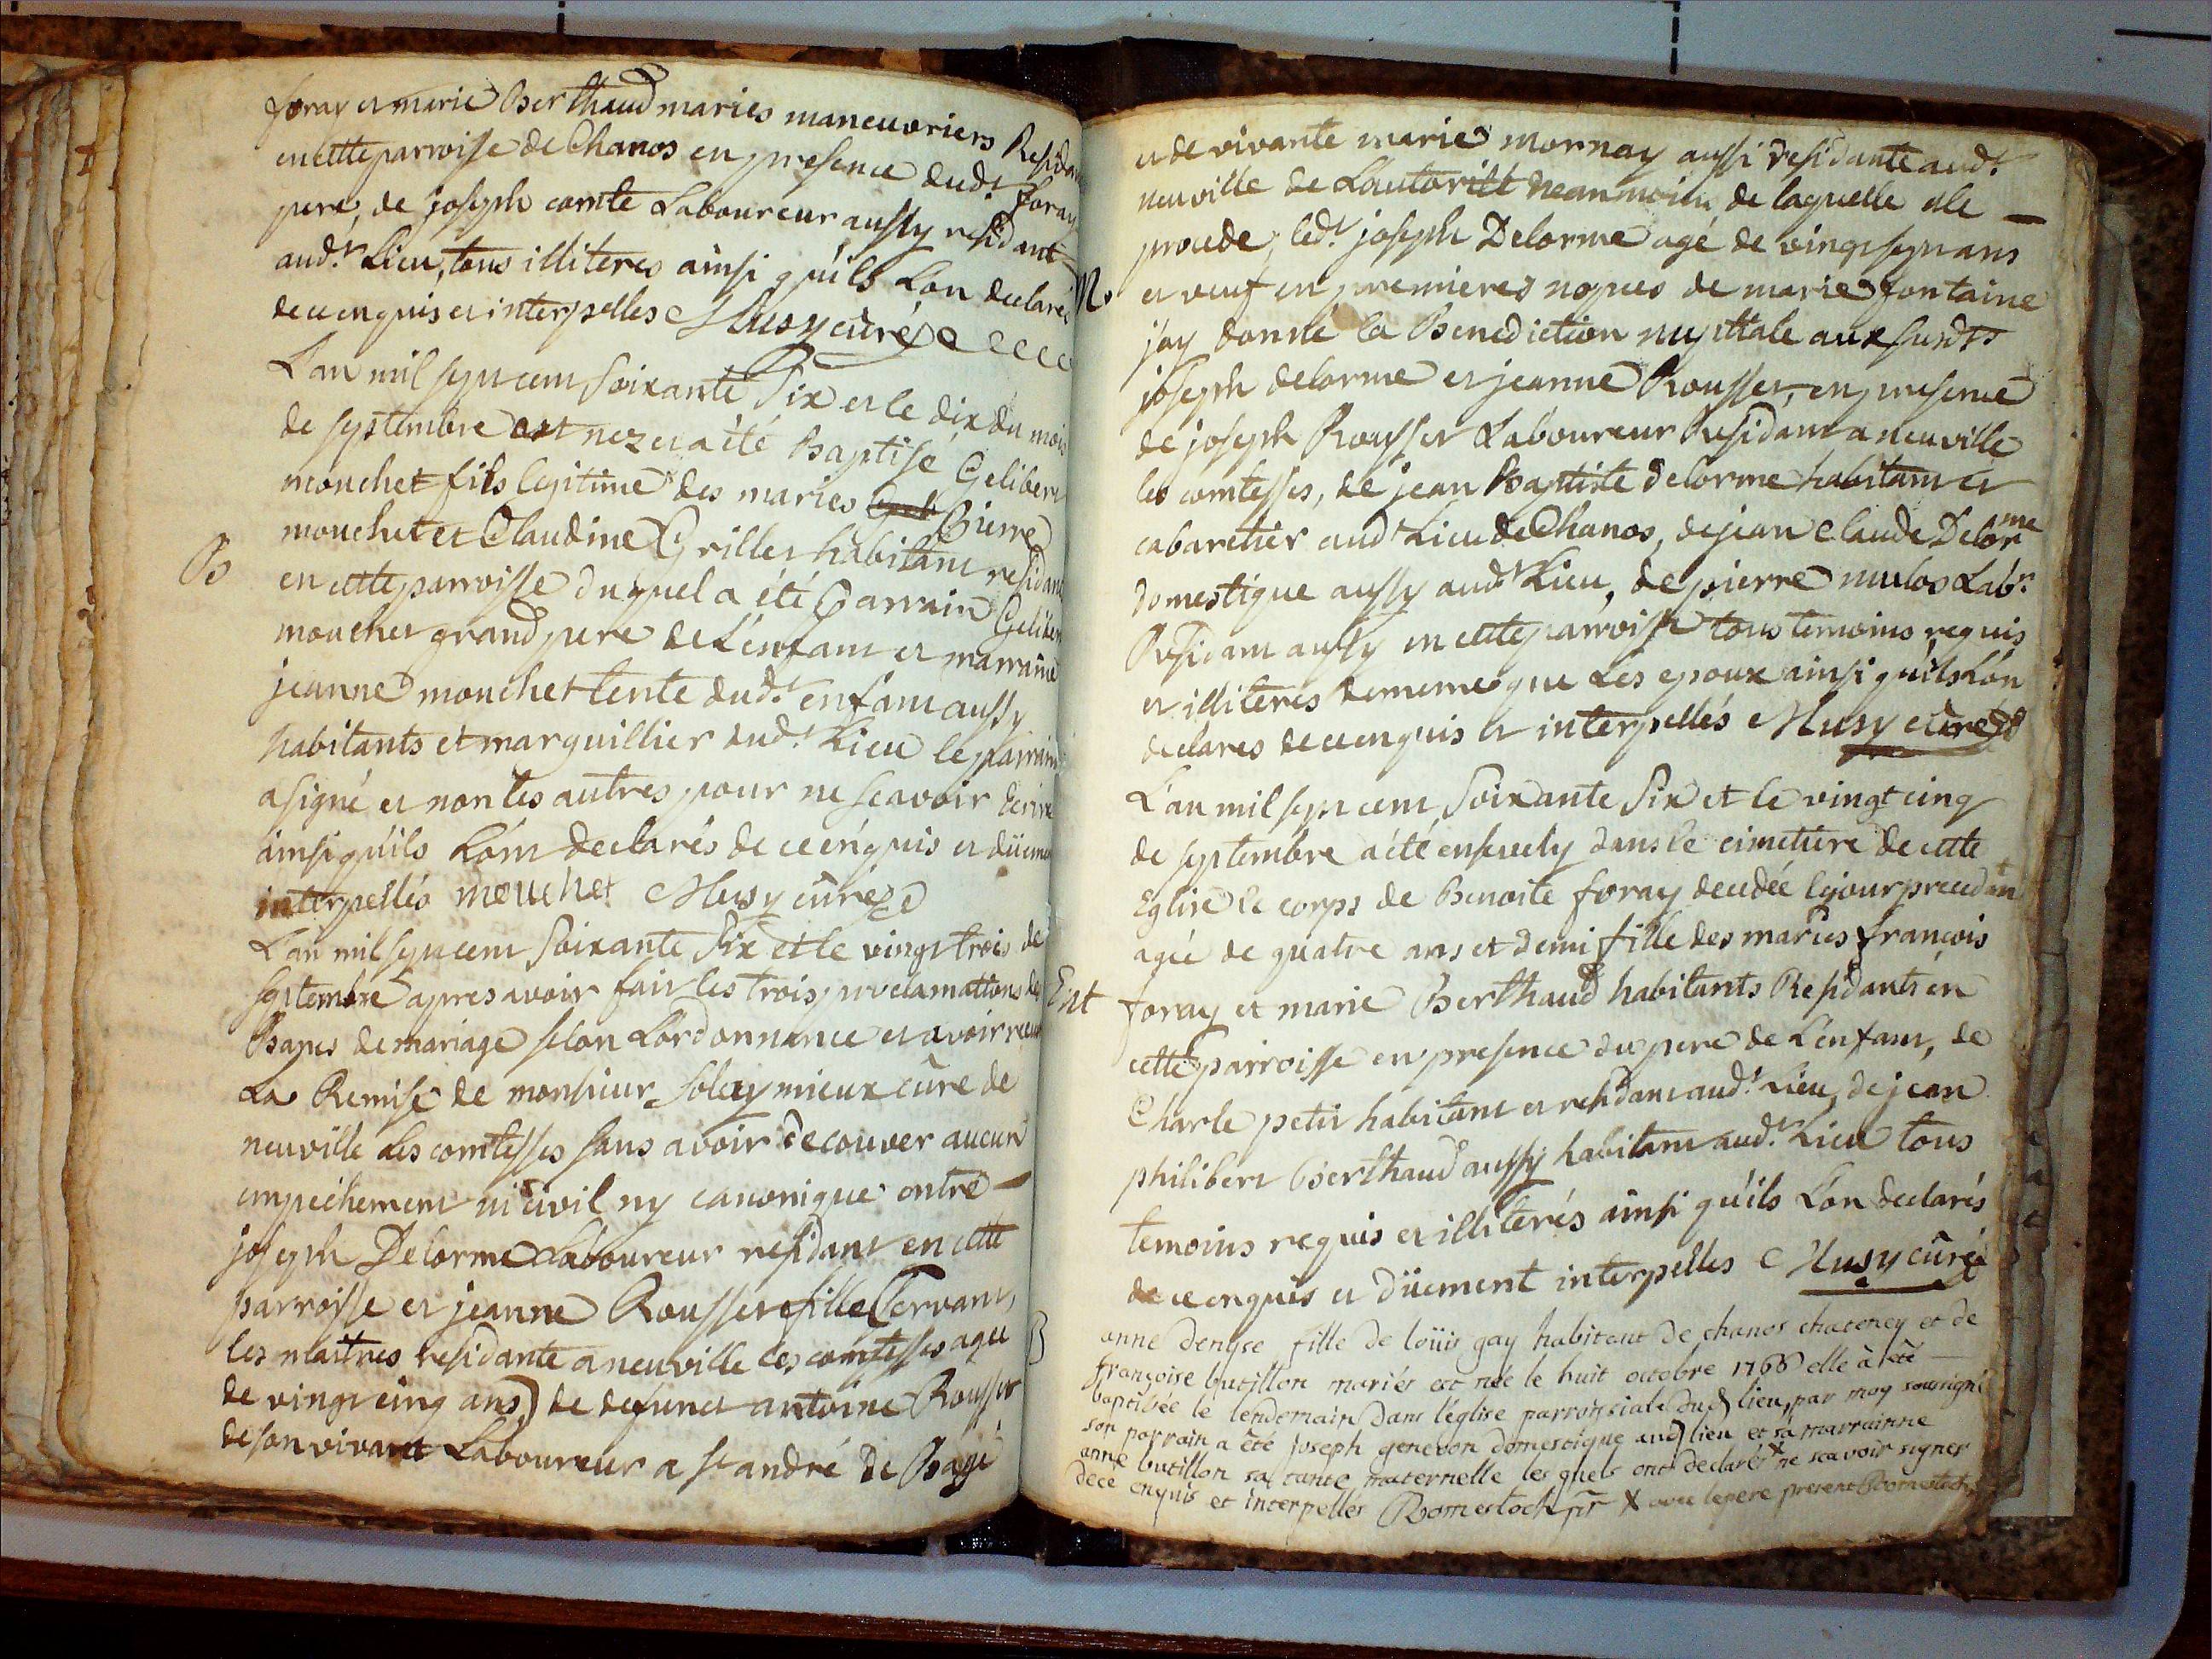 foray et marie Berthaud maries maneuvriers Resida
en cette parroisse de Chanos en presence dud.t foray
pere, de joseph comte Laboureur aussy residant
aud.t Lieu, tous illiteres ainsi qu'ils Lon declarés
de ce enquis et interpelles Musy curé
L'an mil sept cent soixante Six et le dix du mois
de septembre est nez et a été Baptisé Gelibert
mouchet fils legitime des maries Pierre
mouchet et Claudine Grillet habitant residant
B
en cette parroisse duquel a été Parrain Gelibert
mouchet grand pere de L'enfant et marraine
jeanne mouchet tente dud.t enfant aussy
habitants et marguillier dud.t Lieu le parrain
a signé et non les autres pour ne scavoir Ecrire
ainsi qu'ils Lont declarés de ce enquis et düement
interpellés mouchet Musy curé
L'an mil sept cent soixante Six et le vingt trois de
septembre apres avoir fait les trois proclamattons de
Bapts de mariage selon Lordonnance et avoir receu
La Remise de monsieur Soleymieux cûre de
neuville Les comtesses sans avoir decouver aucun
empechement ni civil ny canonique entre
joseph Delorme Laboureur residant en cette
parroisse et jeanne Rousset fille servant
les maitres residante a neuville les comtesses agee
de vingt cinq ans) de defunct antoine Rousset
de son vivant Laboureur a St andré de Bage
et de vivante marie mornay aussi residante aud.t
neuville de Lautorité neanmoins de laquelle elle
procede, led.t joseph Delorme agé de vingt sept ans
M
et veuf en premieres nopces de marie fontaine
j'ay donné la Benediction nuptiale aux susdts
joseph delorme et jeanne Rousset, en presence
de joseph Rousset Laboureur Residant a neuville
les comtesses, de jean Baptiste delorme habitant et
cabaretier aud.t Lieu de Chanos, de jean Claude Delorme
domestique aussy aud.t Lieu, de pierre mulos Lab.r
Residant aussy en cette parroisse tous temoins requis
et illiteres de meme que Les epoux ainsi qu'ils Lon
declares de ce enquis et interpellés Musy cure
L'an mil sept cent soixante Six et le vingt cinq
de septembre a été ensevely dans le cimetiere de cette
Eglise le corps de Benoite foray decedée le jour precedant
agée de quatre ans et demi fille des maries françois
Ent
foray et marie Berthaud habitants Residants en
cette parroisse en presence du pere de L'enfant, de
Charle petit habitant et residant aud.t Lieu, de jean
philibert Berthaud aussy habitant aud.t Lieu tous
temoins requis et illiterés ainsi qu'ils L'on declarés
de ce enquis et düement interpelles Musy cûré
B
anne denyse fille de loüis gay habitant de chanos chateney et de
françoise butillon mariés est née le huit octobre 1766 elle à été
baptisée le lendemain dans l'église parroissiale dud) lieu, par moy soussigné
son parrain a été joseph genevon domestique aud) lieu et sa marrainne
anne butillon sa tante maternelle lesquels ont declaré X ne scavoir signer
de ce enquis et interpellés Romestoch ptr X avec le pere present Romestoch